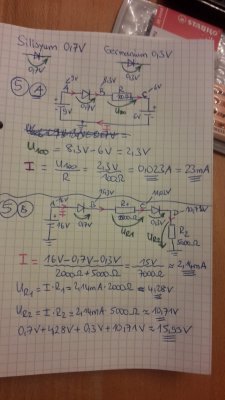 STABILO
Silisyum 0,7V Germanium 0,3V
0,7V 0,3V
5 4
9V 8,3V 6V
A B R C
0,7V 100Ω U100
9V I 6V
U100 = 8,3V - 6V = 2,3V
I = U100 / R = 2,3V / 100Ω = 0,023A = 23mA
5 B
A 16V B 15,3V R1 C 11,02V D 10,72V
16V I 0,7V 2000Ω UR1 0,3V UR2 R2 5000Ω
I = 16V-0,7V-0,3V / 2000Ω+5000Ω = 15V / 7000Ω ≈ 2,14mA
UR1 = I·R1 = 2,14mA·2000Ω ≈ 4,28V
UR2 = I·R2 = 2,14mA·5000Ω ≈ 10,71V
0,7V + 4,28V + 0,3V + 10,71V ≈ 15,99V